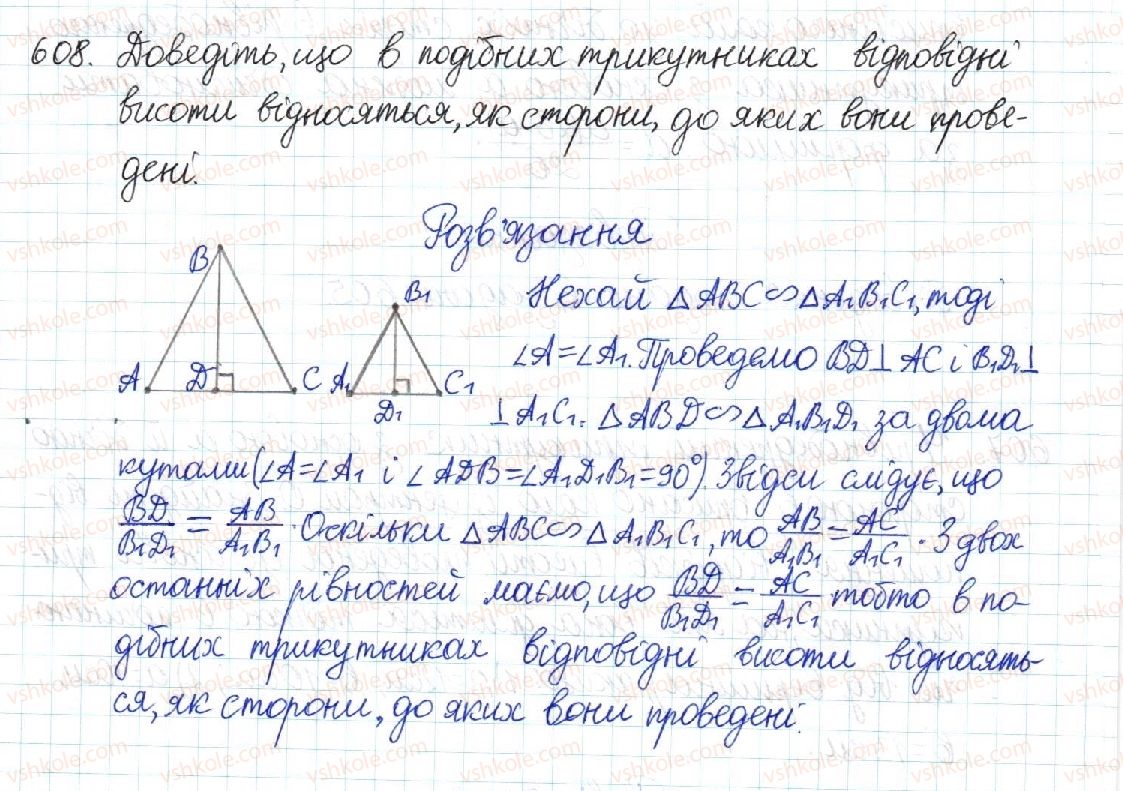 608. Доведіть, що в подібних трикутниках відповідні
висоти відносяться, як сторони, до яких вони прове-
дені.
Розв'язання
B
A
D
C
B₁
A₁
D₁
C₁
Нехай △ABC∽△A₁B₁C₁, тоді
∠A=∠A₁. Проведемо BD⊥AC і B₁D₁⊥
⊥A₁C₁. △ABD∽△A₁B₁D₁ за двома
кутами (∠A=∠A₁ і ∠ADB=∠A₁D₁B₁=90°). Звідси слідує, що
BD/B₁D₁ = AB/A₁B₁. Оскільки △ABC∽△A₁B₁C₁, то AB/A₁B₁ = AC/A₁C₁. З двох
останніх рівностей маємо, що BD/B₁D₁ = AC/A₁C₁ тобто в по-
дібних трикутниках відповідні висоти відносять-
ся, як сторони, до яких вони проведені.
vshkole.com